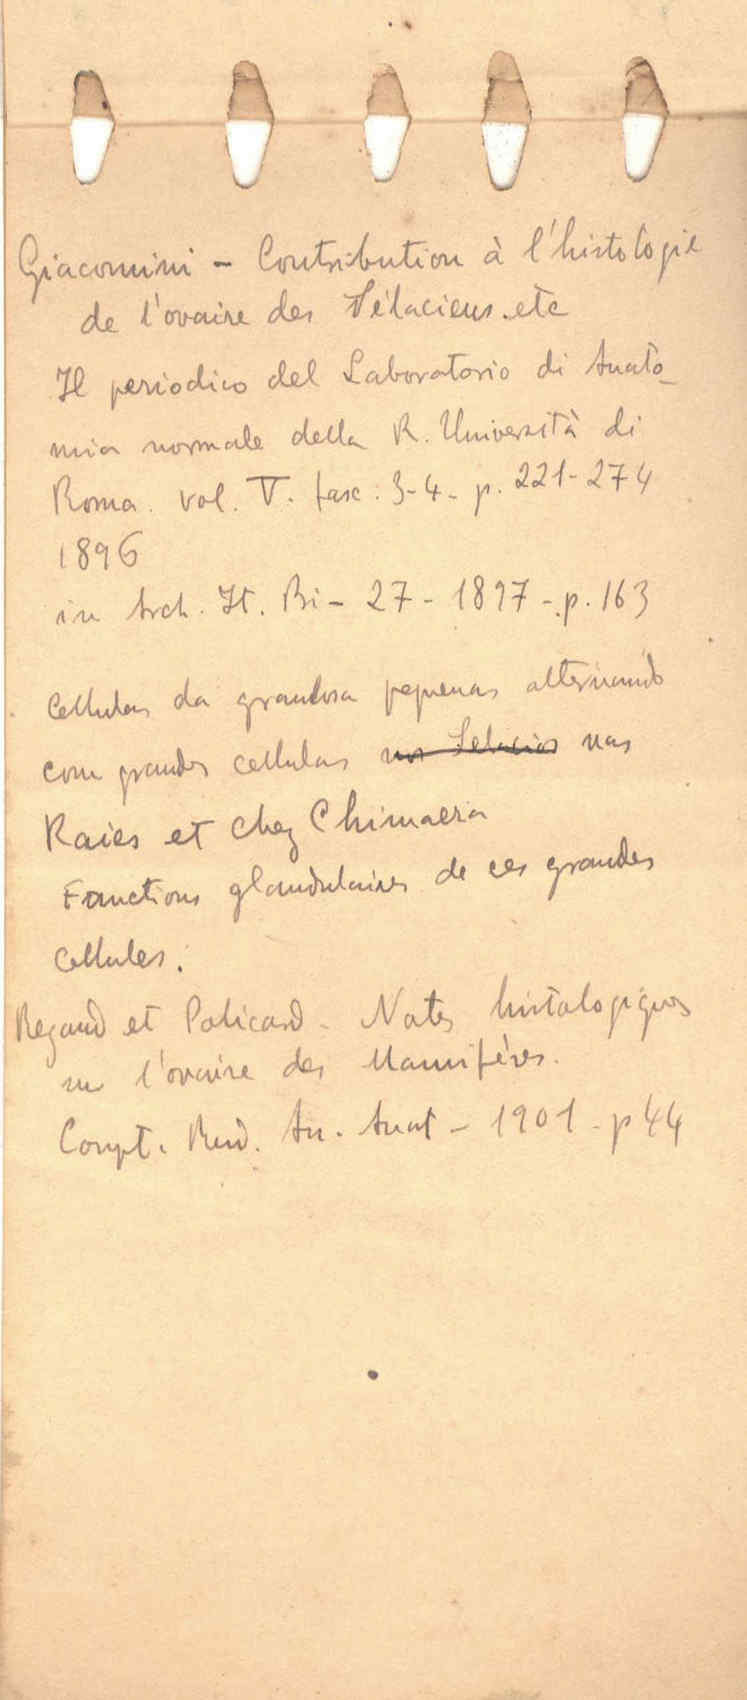 Giacomini - Contribution à l'histologie
de l'ovaire des Sélaciens. etc
Il periodico del Laboratorio di Anato_
mia normale della R. Università di
Roma. vol. V. fasc: 3-4 - p. 221-274
1896
in Arch. It. Bi - 27 - 1897 - p. 163
Cellulas da granulosa pequenas alternando
com grandes cellulas nos Selacios nas
Raies et chez Chimaera
Fonctions glandulaires de ces grandes
cellules.
Regaud et Policard - Notes histologiques
sur l'ovaire des Mamifères.
Compt. Rend. An. Anat - 1901 - p 44